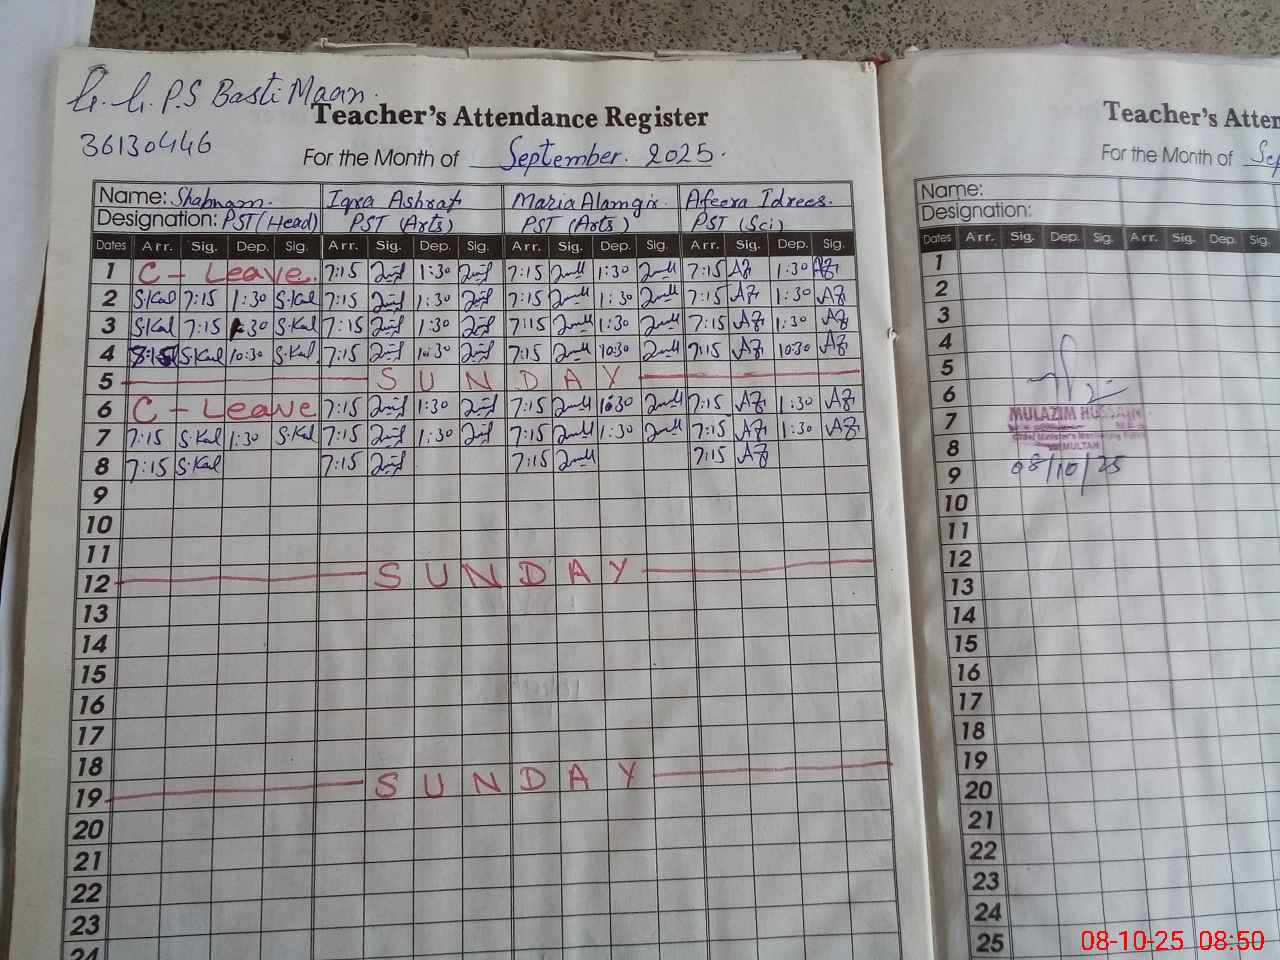 G. G. P.S Basti Maan.
36130446
Teacher's Attendance Register
For the Month of September. 2025.
Name: Shabnam. Iqra Ashraf Maria Alamgir Afeera Idrees.
Designation: PST(Head) PST (Arts) PST (Arts) PST (Sci)
Dates Arr. Sig. Dep. Sig. Arr. Sig. Dep. Sig. Arr. Sig. Dep. Sig. Arr. Sig. Dep. Sig.
1 C - Leave. 7:15 1:30 7:15 1:30 7:15 AZ 1:30 AZ
2 S.Kal 7:15 1:30 S.Kal 7:15 1:30 7:15 1:30 7:15 AZ 1:30 AZ
3 S.Kal 7:15 1:30 S.Kal 7:15 1:30 7:15 1:30 7:15 AZ 1:30 AZ
4 S.Kal 10:30 S.Kal 7:15 10:30 7:15 10:30 7:15 AZ 10:30 AZ
5 SUNDAY
6 C - Leave 7:15 1:30 7:15 7:15 AZ 1:30 AZ
7 7:15 S.Kal 1:30 S.Kal 7:15 1:30 7:15 1:30 7:15 AZ 1:30 AZ
8 7:15 S.Kal 7:15 7:15 7:15 AZ
9
10
11
12 SUNDAY
13
14
15
16
17
18
19 SUNDAY
20
21
22
23
24
Teacher's Atten
For the Month of Sep
Name:
Designation:
Dates Arr. Sig. Dep. Sig. Arr. Sig. Dep. Sig.
1
2
3
4
5
6
7 MULAZIM HUSSAIN
Chief Minister's Monitoring Force
8 MULTAN
9 08/10/25
10
11
12
13
14
15
16
17
18
19
20
21
22
23
24
25
08-10-25 08:50